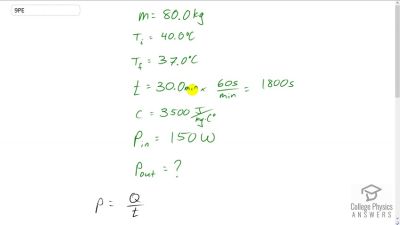 9PE
m = 80.0 kg
Ti = 40.0°C
Tf = 37.0°C
t = 30.0 min × 60s/min = 1800s
c = 3500 J/kg·C°
Pin = 150 W
Pout = ?
P = Q/t
College Physics
Answers.com